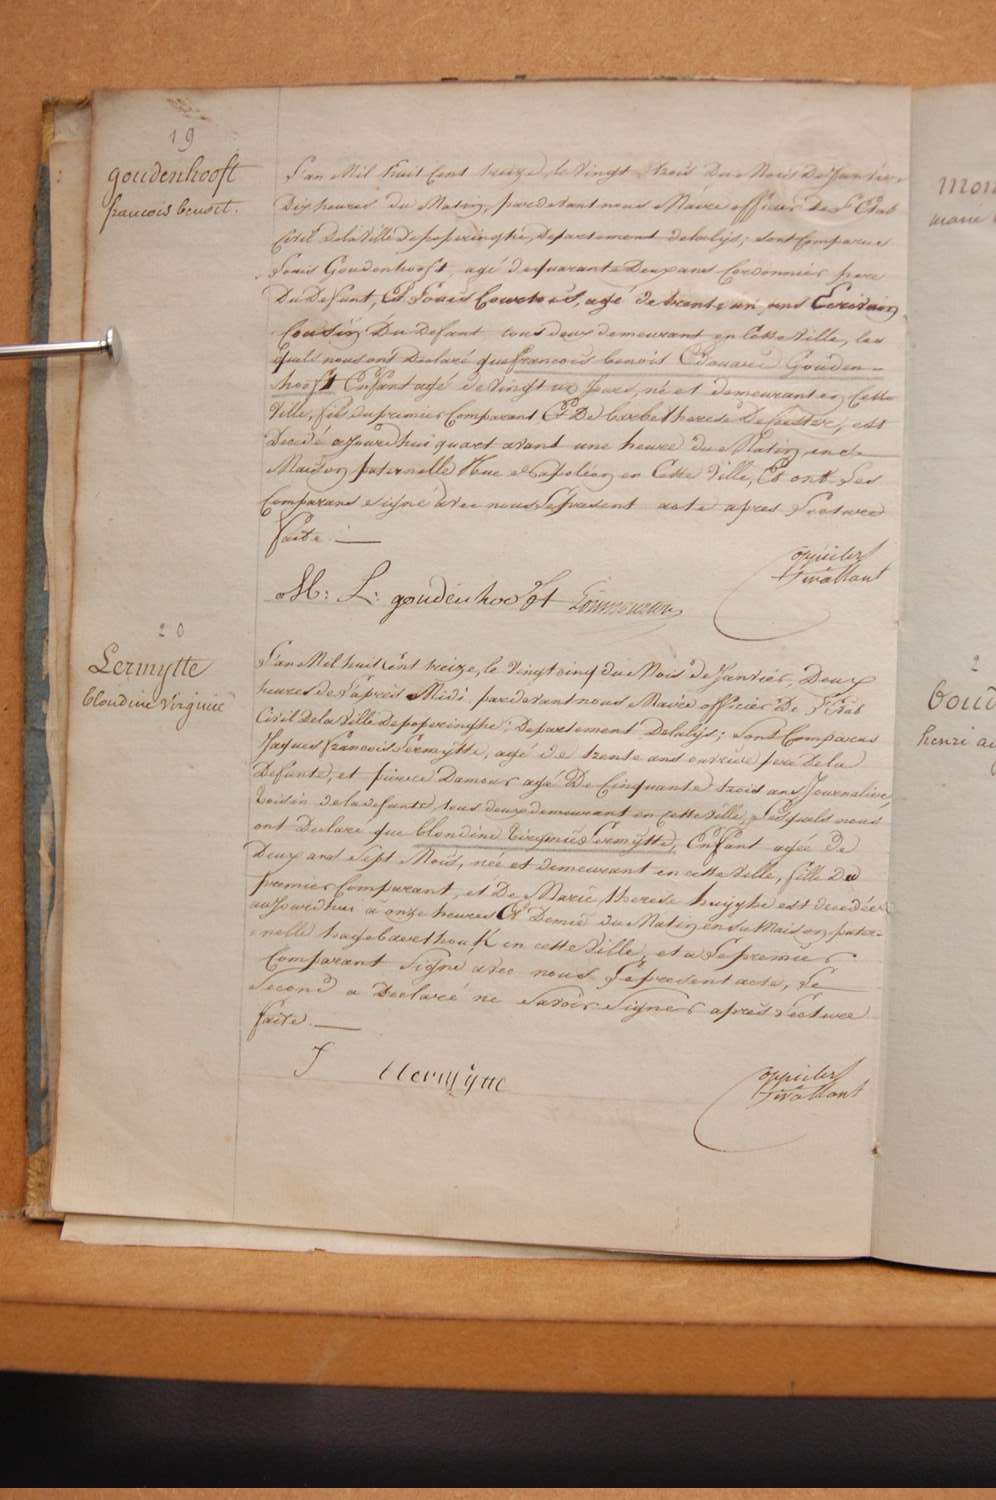 19
goudenhooft
francois benoit.
L'an Mil huit Cent treize, le Vingt trois du Mois De Janvier
Dix heures du Matin, pardevant nous Maire officier de L'Etat
Civil Dela Ville De poperinghe, Departement delalijs; sont Comparus
Louis Goudenhooft, agé de quarante Deux ans Cordonnier pere
Du Defunt, Et Louis Courtois, agé de trente un ans Ecrivain
Cousin Du Defunt tous deux demeurant en Cette Ville, les
quels nous ont Declaré que francois benoit Edouard Gouden-
hooft Enfant agé de Vingt jours, né et demeurant en Cette
Ville, fils du premier Comparant Et De barbe therese, est
Decédé aujourdhui quart avant une heure du Matin en sa
Maison paternelle Rue Napoléon en Cette Ville, Et ont Les
Comparans Signé avec nous Le present acte apres Lecture
faite.
M: L: goudenhooft
20
Lermytte
blondine virginie
L'an Mil huit Cent treize, le Vingt cinq du Mois de Janvier, Deux
heures de L'après Midi pardevant nous Maire officier De L'Etat
Civil Dela Ville De poperinghe, Departement Delalijs; sont Comparus
Jaques francois Lermytte, agé de trente ans ouvrier pere Dela
Defunte, et pierre Damour agé De Cinquante trois ans Journalier,
Voisin de la defunte tous deux demeurant en cette Ville, Lesquels nous
ont Declaré que blondine Virginie Lermytte, Enfant agée de
Deux ans Sept Mois, née et demeurant en cette Ville, fille Du
premier Comparant, et De Marie therese huyghe est decedée
aujourdhui à onze heures Et Demie du Matin en sa Maison pater-
nelle en cette Ville, et a Le premier
Comparant Signé avec nous Le present acte, Le
Second a Declaré ne Savoir Signer après Lecture
faite.
J Lermytte
2